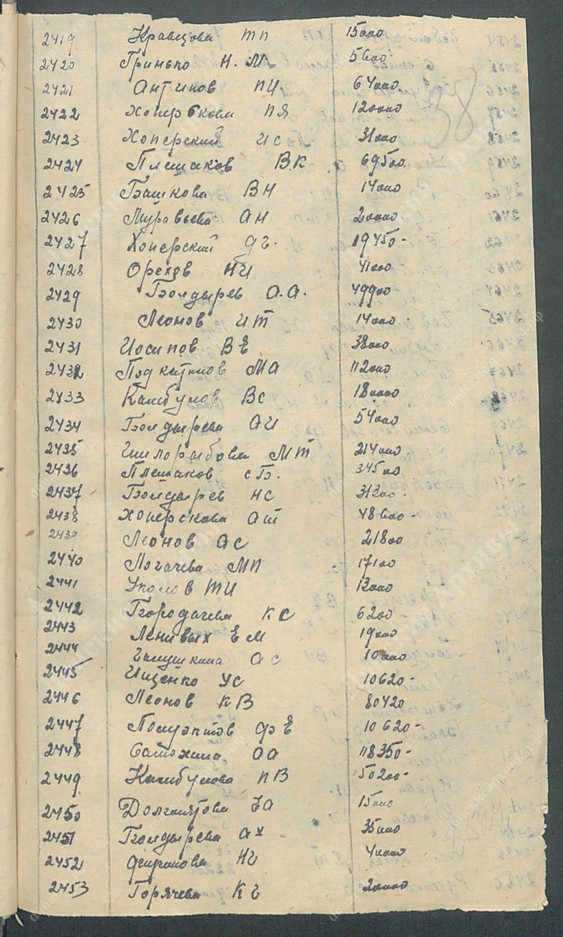 2419 Кравцова ТП 15000
2420 Гринько Н.М 5600
2421 Антипов ПИ 64000
2422 ПЯ 120000
2423 Хоперский ИС 31000
2424 Плешаков ВК 69500
2425 Башкова ВН 14000
2426 Муравьева АН 20000
2427 Хоперский ДГ. 19450-
2428 Орехов НИ 41000
2429 Болдырев А.А. 49900
2430 Леонов ИТ 14000
2431 Иосипов ВЕ 38000
2432 МА 112000
2433 Камбулов ВС 180000
2434 Болдырева АИ 54000
2435 Шило МТ 214000
2436 Плешаков СБ. 34500
2437 Болдырев НС 31200-
2438 Хоперскова АТ 48600-
2439 Леонов АС 21800
2440 Логачева МП 17100
2441 Уколов ТИ 12000
2442 Городачева КС 6200
2443 Ленивых ЕМ 19000
2444 АС 10000
2445 Ищенко УС 10620-
2446 Леонов КВ 80420
2447 ФЕ 10620-
2448 ОА 118350-
2449 Камбулова ПВ 50200-
2450 ЕА 15000
2451 Болдырева АХ 35000
2452 НГ 40000
2453 Горячева КГ 20000